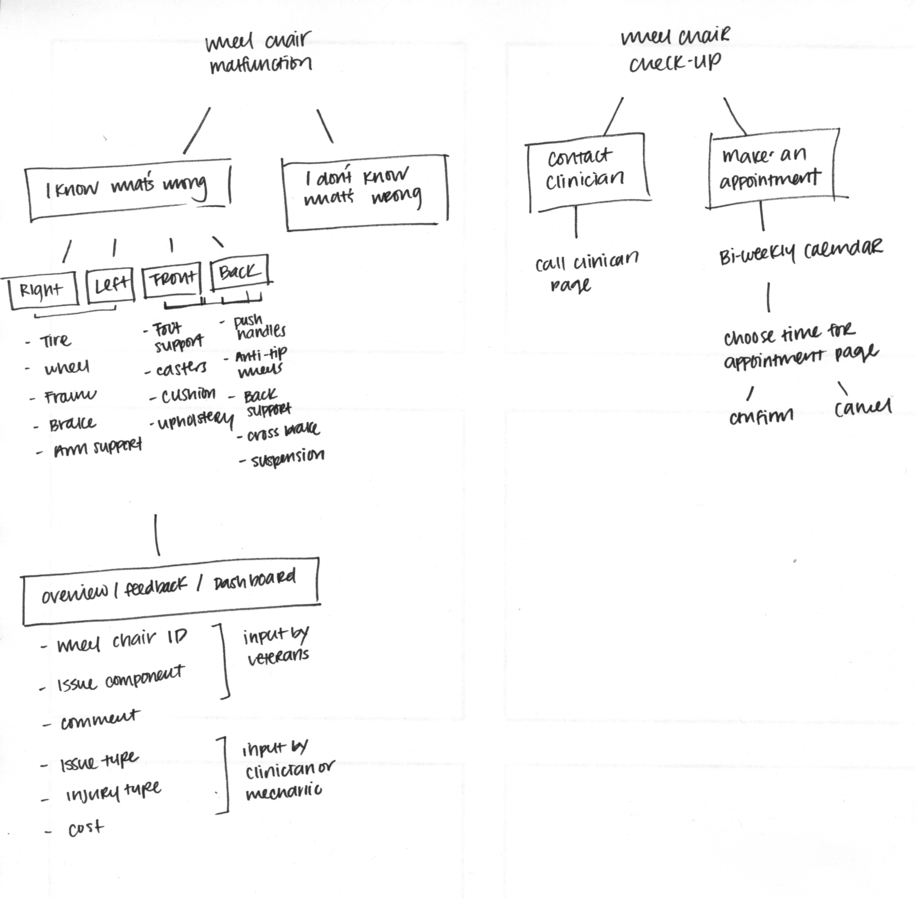 wheel chair
malfunction
I know what's wrong
I don't know
what's wrong
Right
Left
Front
Back
- Tire
- wheel
- Frame
- Brake
- Arm support
- Foot
support
- casters
- cushion
- upholstery
- push
handles
- Anti-tip
wheels
- Back
support
- cross brake
- suspension
overview / feedback / Dashboard
- wheel chair ID
- Issue component
input by
veterans
- comment
- Issue type
- injury type
input by
clinician or
mechanic
- cost
wheel chair
check-up
contact
clinician
call clinican
page
make an
appointment
Bi-weekly calendar
choose time for
appointment page
confirm
cancel